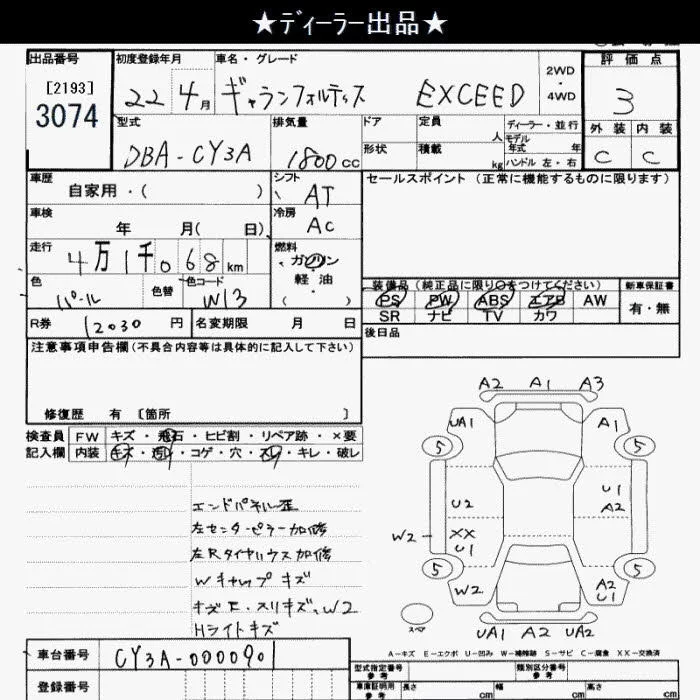 ★ディーラー出品★
出品番号 初度登録年月 車名・グレード 2WD・4WD 評価点
[2193]
3074
22 4月 ギャランフォルティス EXCEED 3
型式 排気量 ドア 定員 人 ディーラー・並行 外装 内装
DBA-CY3A 1800cc 形状 積載 kg モデル年式 年 ハンドル 左・右 C C
車歴 シフト セールスポイント(正常に機能するものに限ります)
自家用・( ) AT
車検 冷房
年 月( 日) AC
走行 燃料
4万1千068km ガソリン
軽・油
( )
色 色替 色コード
パール W13
装備品(純正品に限り○をつけてください) 新車保証書
PS PW ABS エアB AW 有・無
SR ナビ TV カワ
R券 12030円 名変期限 月 日 後日品
注意事項申告欄(不具合内容等は具体的に記入して下さい)
修復歴 有 [箇所 ]
検査員 FW キズ・飛石・ヒビ割・リペア跡・×要
記入欄 内装 キズ・汚れ・コゲ・穴・スレ・キレ・破レ
エンドパネル歪
左センターピラー加修
左Rタイヤハウス加修
Wキャップキズ
Hライトキズ
A2 A1 A3
UA1 A1
5 5
U2 U1
A2
W2 XX
U1
5 5
W2 A2
U1
スペア
UA1 A2 UA2
A-キズ E-エクボ U-凹み W-補修跡 S-サビ C-腐食 XX-交換済
車台番号 CY3A-0000901
登録番号
型式指定番号 参考 類別区分番号 参考
車庫証明用 参考 長さ cm 幅 cm 高さ cm